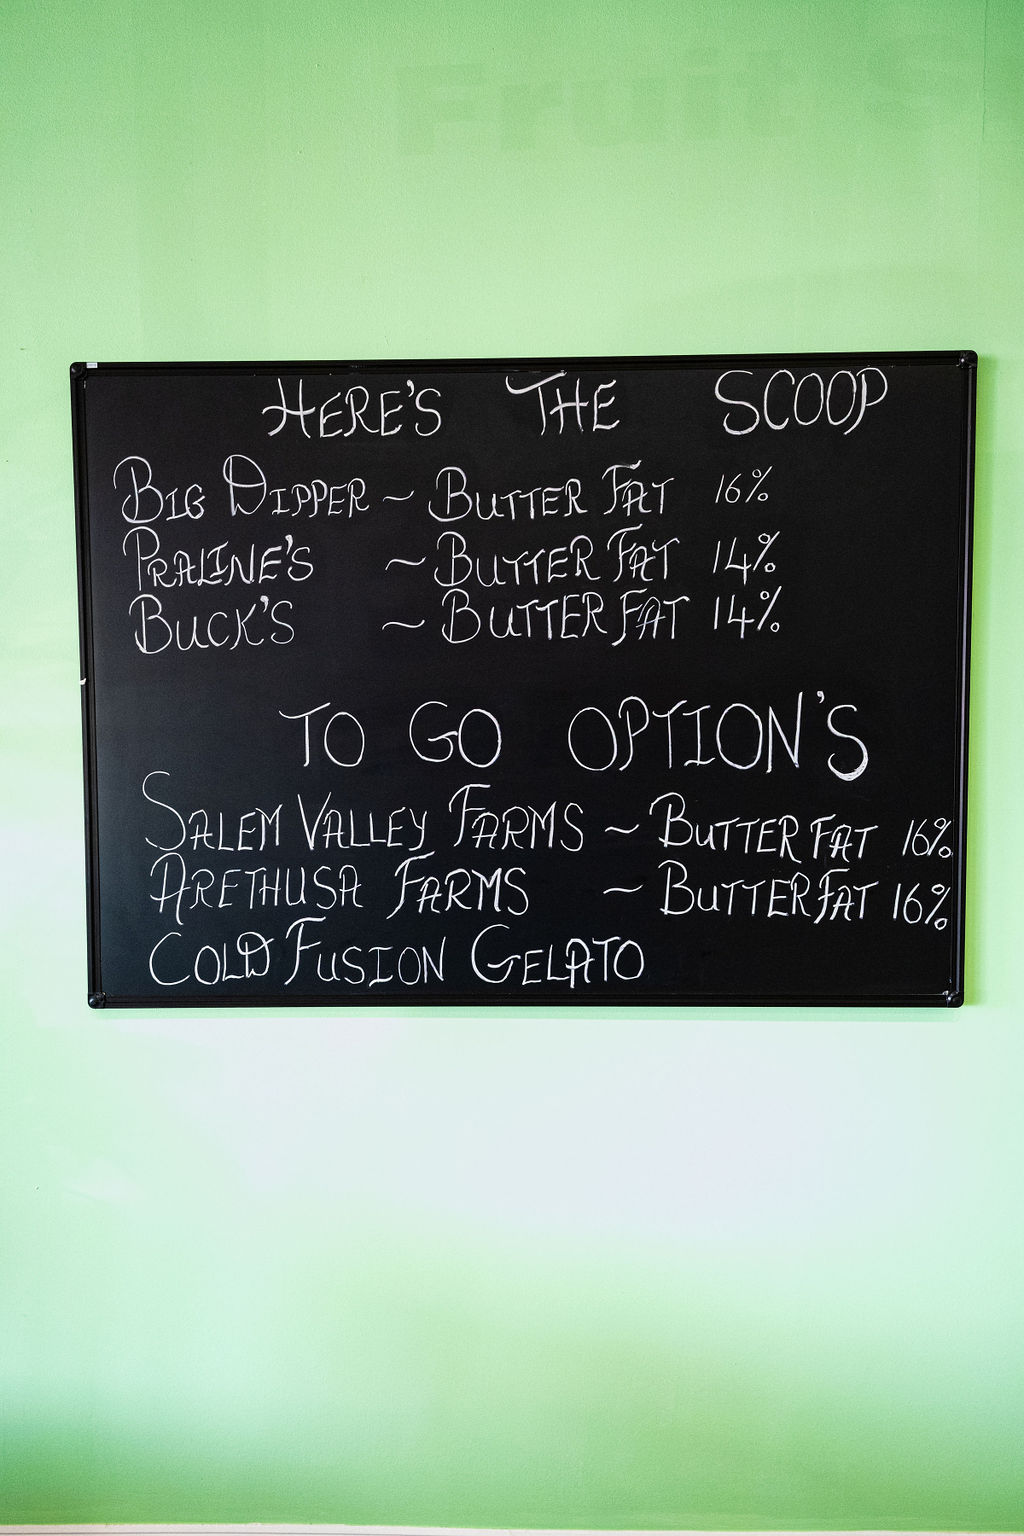 Fruit S
HERE'S THE SCOOP
BIG DIPPER ~ BUTTER FAT 16%
PRALINE'S ~ BUTTER FAT 14%
BUCK'S ~ BUTTER FAT 14%
TO GO OPTION'S
SALEM VALLEY FARMS ~ BUTTER FAT 16%
ARETHUSA FARMS ~ BUTTER FAT 16%
COLD FUSION GELATO